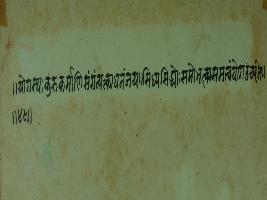 ॥योगस्थः कुरु कर्माणि संगं त्यक्त्वा धनंजय। सिध्यसिध्योः समो भूत्वा समत्वं योग उच्यते॥
॥४८॥